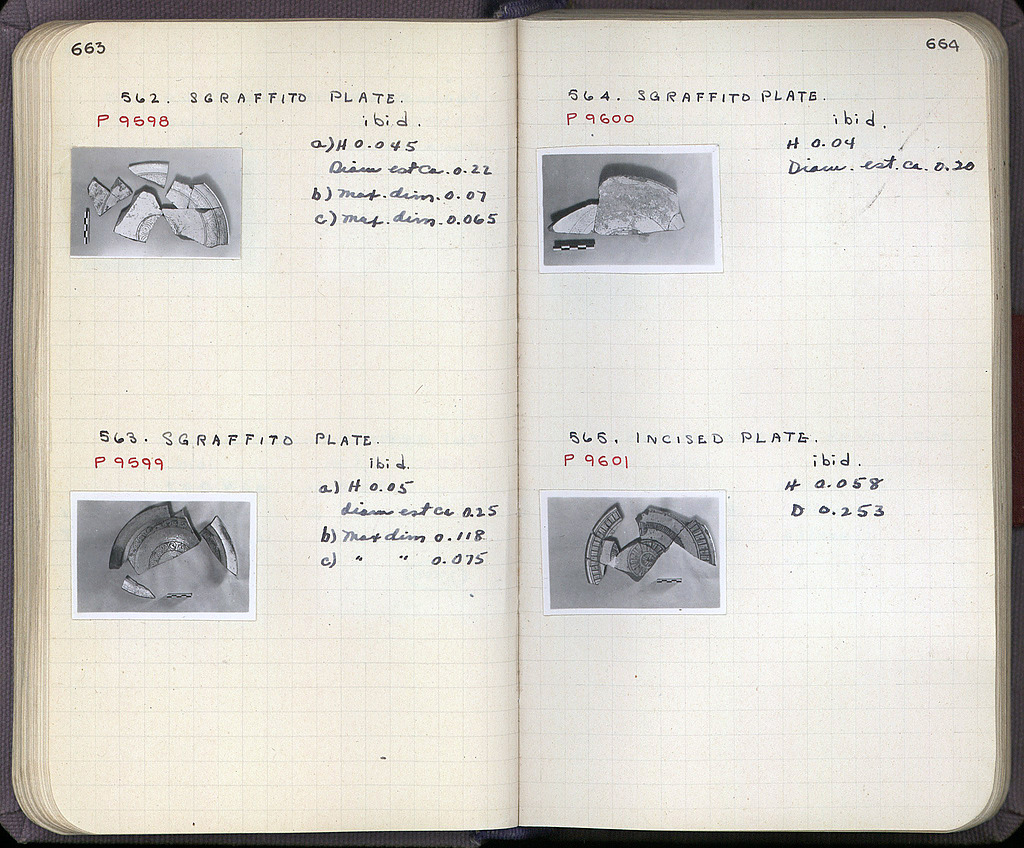 663
562. SGRAFFITO PLATE.
P 9598
ibid.
a) H 0.045
Diam est ca. 0.22
b) Max. dim. 0.07
c) Max. dim. 0.065
563. SGRAFFITO PLATE.
P 9599
ibid.
a) H 0.05
diam est ca 0.25
b) Max dim 0.118
c) " " 0.075
664
564. SGRAFFITO PLATE.
P 9600
ibid.
H 0.04
Diam. est. ca. 0.20
565. INCISED PLATE.
P 9601
ibid.
H 0.058
D 0.253